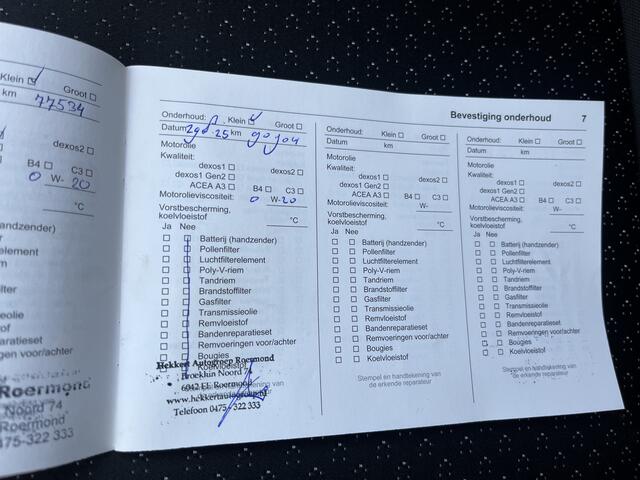 Klein ☑ Groot ☐
km 77534
dexos2 ☐
B4 ☐ C3 ☐
0 W-20
°C
(handzender)
r
element
m
filter
er
ieolie
stof
paratieset
ringen voor/achter
s
eistof
Roermond
Noord 74
Roermond
475-322 333
Bevestiging onderhoud 7
Onderhoud: Klein ☑ Groot ☐
Datum km 90704
Motorolie
Kwaliteit:
dexos1 ☐ dexos2 ☐
dexos1 Gen2 ☐
ACEA A3 ☐ B4 ☐ C3 ☐
Motorolieviscositeit: 0 W-20
Vorstbescherming,
koelvloeistof °C
Ja Nee
☐ ☐ Batterij (handzender)
☐ ☐ Pollenfilter
☐ ☐ Luchtfilterelement
☐ ☐ Poly-V-riem
☐ ☐ Tandriem
☐ ☐ Brandstoffilter
☐ ☐ Gasfilter
☐ ☐ Transmissieolie
☐ ☐ Remvloeistof
☐ ☐ Bandenreparatieset
☐ ☐ Remvoeringen voor/achter
☐ ☐ Bougies
☐ ☐ Koelvloeistof
Hekkert Autogroep Roermond
Broekhin Noord
6042 EL Roermond
www.hekkertautogroep.nl
Telefoon 0475 - 322 333
Onderhoud: Klein ☐ Groot ☐
Datum km
Motorolie
Kwaliteit:
dexos1 ☐ dexos2 ☐
dexos1 Gen2 ☐
ACEA A3 ☐ B4 ☐ C3 ☐
Motorolieviscositeit: W-
Vorstbescherming,
koelvloeistof °C
Ja Nee
☐ ☐ Batterij (handzender)
☐ ☐ Pollenfilter
☐ ☐ Luchtfilterelement
☐ ☐ Poly-V-riem
☐ ☐ Tandriem
☐ ☐ Brandstoffilter
☐ ☐ Gasfilter
☐ ☐ Transmissieolie
☐ ☐ Remvloeistof
☐ ☐ Bandenreparatieset
☐ ☐ Remvoeringen voor/achter
☐ ☐ Bougies
☐ ☐ Koelvloeistof
Stempel en handtekening van
de erkende reparateur
Onderhoud: Klein ☐ Groot ☐
Datum km
Motorolie
Kwaliteit:
dexos1 ☐ dexos2 ☐
dexos1 Gen2 ☐
ACEA A3 ☐ B4 ☐ C3 ☐
Motorolieviscositeit: W-
Vorstbescherming,
koelvloeistof °C
Ja Nee
☐ ☐ Batterij (handzender)
☐ ☐ Pollenfilter
☐ ☐ Luchtfilterelement
☐ ☐ Poly-V-riem
☐ ☐ Tandriem
☐ ☐ Brandstoffilter
☐ ☐ Gasfilter
☐ ☐ Transmissieolie
☐ ☐ Remvloeistof
☐ ☐ Bandenreparatieset
☐ ☐ Remvoeringen voor/achter
☐ ☐ Bougies
☐ ☐ Koelvloeistof
Stempel en handtekening van
de erkende reparateur